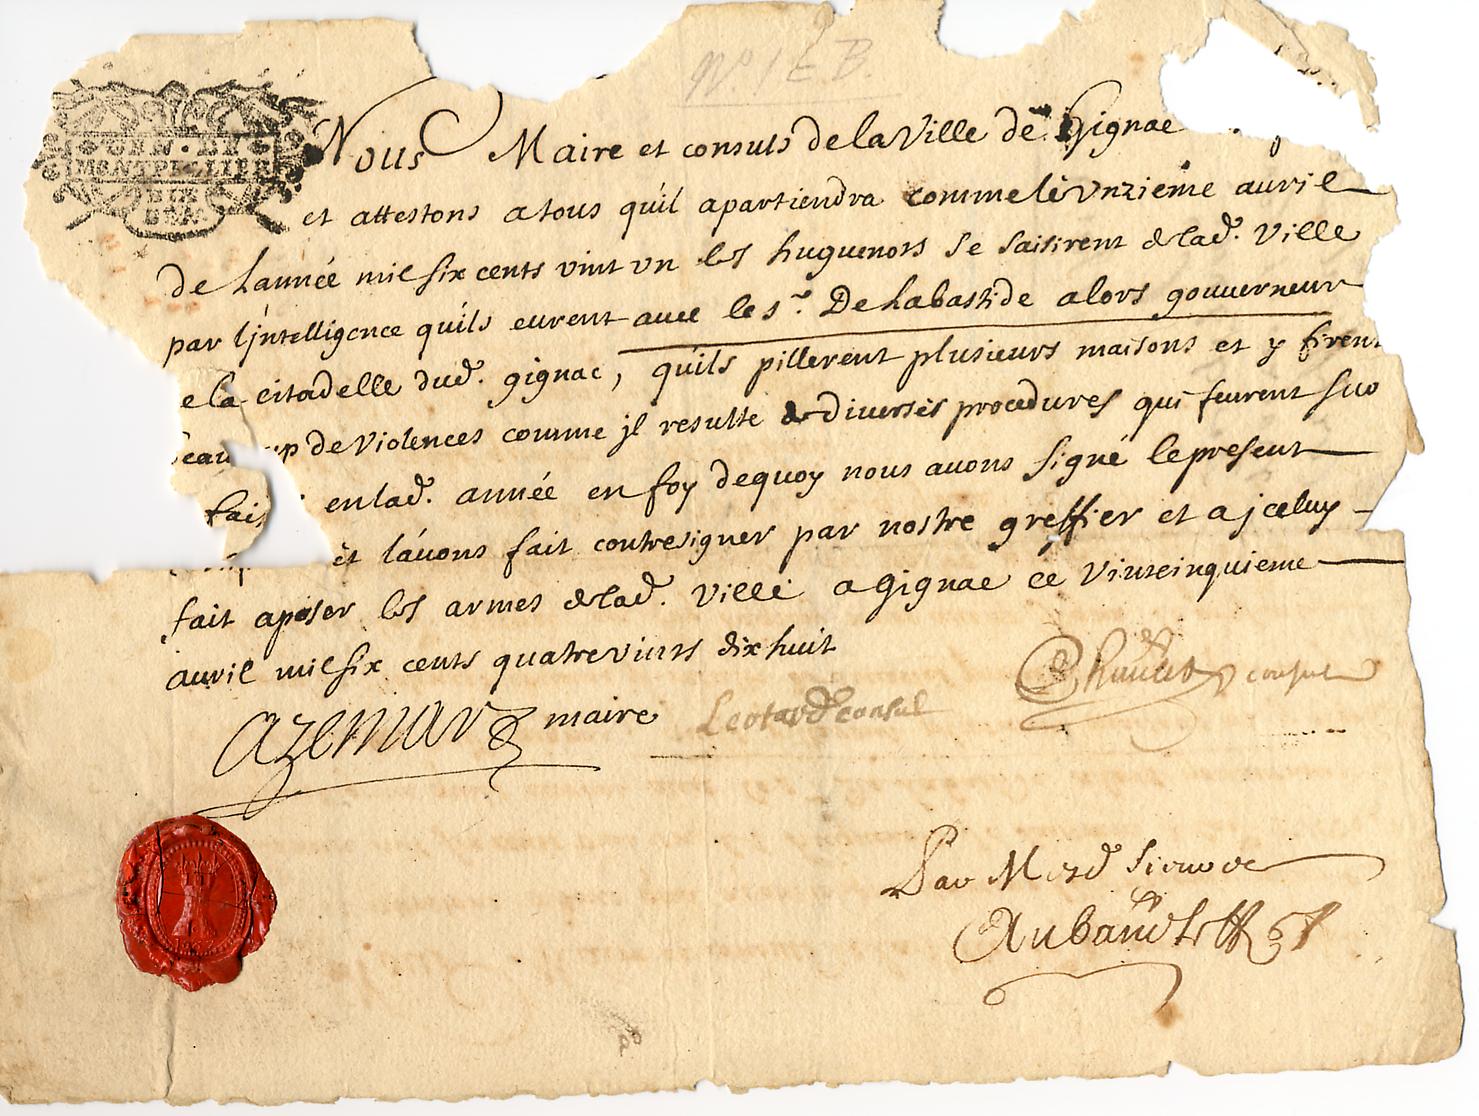 N.º 1 E B.
GEN. DE
MONTPELLIER
SIX
DEN.
Nous Maire et consuls de la Ville de Gignac
et attestons a tous qu'il apartiendra comme le Unzieme avril
de l'année mil six cents vint un les huguenots se saisirent de lad. Ville
par l'jntelligence qu'ils eurent avec le s.r De Labastide alors gouverneur
e la citadelle dud. gignac, qu'ils pillerent plusieurs maisons et y firent
eau up de Violences comme jl resulte de diverses procedures qui feurent suo
fai en lad. année en foy dequoy nous avons signé le present
et l'avons fait contresigner par nostre greffier et a jceluy
fait aposer les armes de lad. Ville a Gignac ce Vintcinquieme
avril mil six cents quatre vints dix huit
Azemar maire Leotard consul consul
Par Mesd. Sieurs